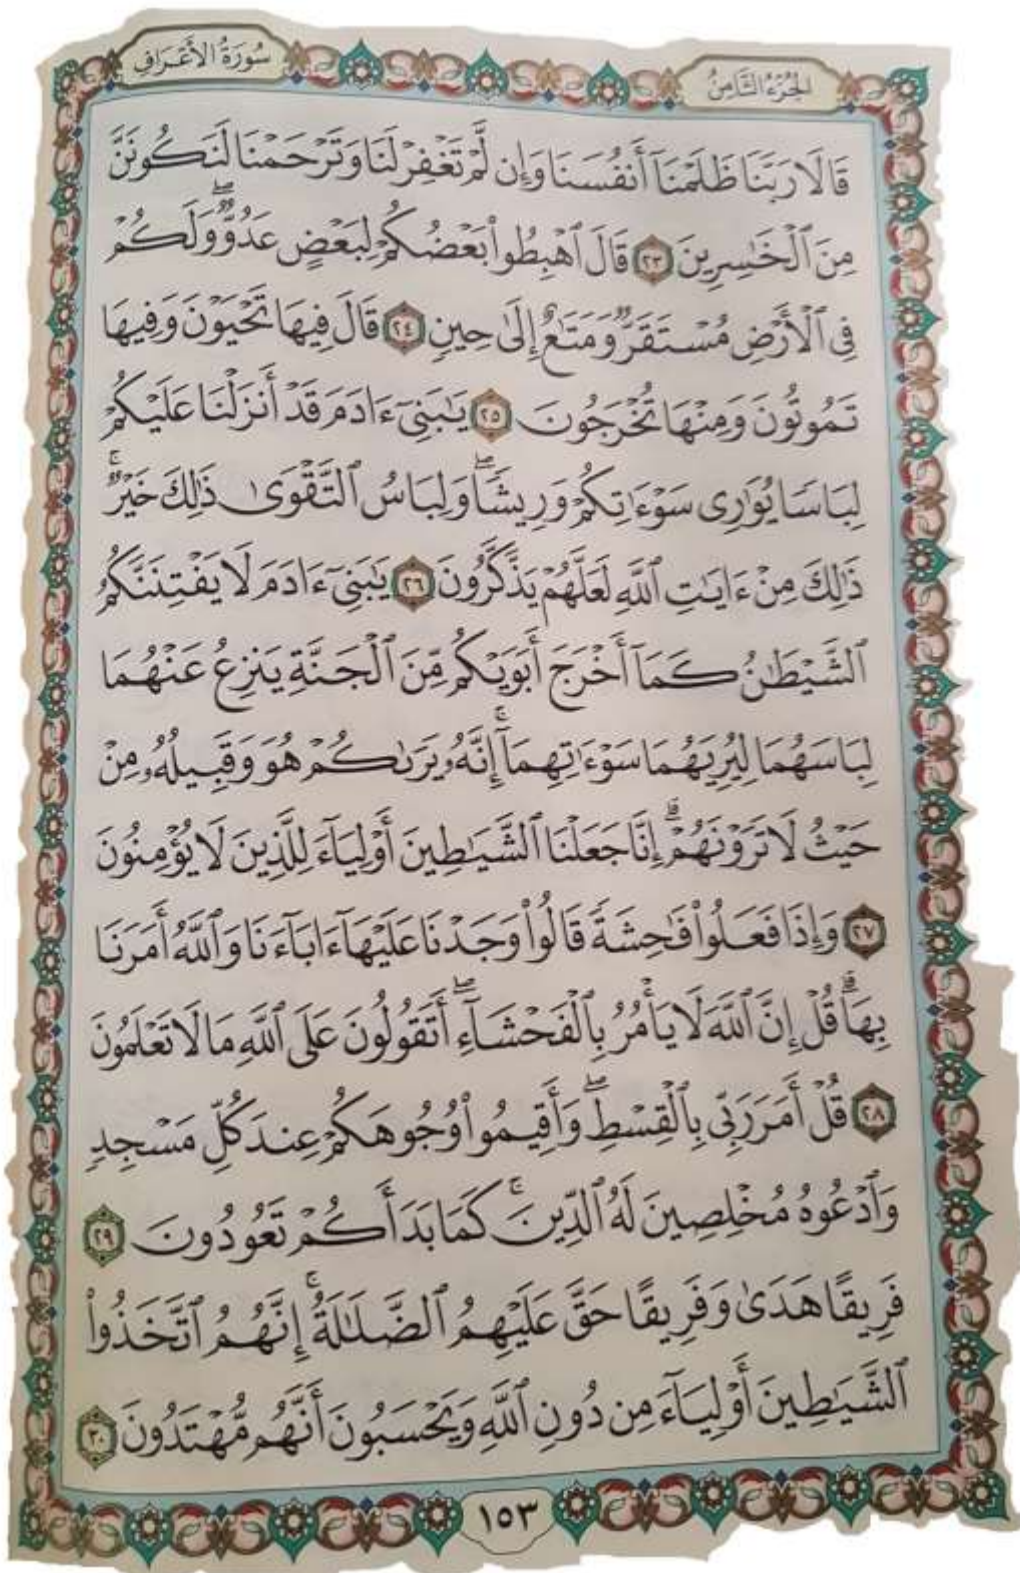 الجُزْءُ الثَّامِنُ
سُورَةُ الأَعْرَافِ
قَالَا رَبَّنَا ظَلَمْنَآ أَنفُسَنَا وَإِن لَّمْ تَغْفِرْ لَنَا وَتَرْحَمْنَا لَنَكُونَنَّ
مِنَ ٱلْخَٰسِرِينَ ٢٣ قَالَ ٱهْبِطُوا۟ بَعْضُكُمْ لِبَعْضٍ عَدُوٌّ ۖ وَلَكُمْ
فِى ٱلْأَرْضِ مُسْتَقَرٌّ وَمَتَٰعٌ إِلَىٰ حِينٍ ٢٤ قَالَ فِيهَا تَحْيَوْنَ وَفِيهَا
تَمُوتُونَ وَمِنْهَا تُخْرَجُونَ ٢٥ يَٰبَنِىٓ ءَادَمَ قَدْ أَنزَلْنَا عَلَيْكُمْ
لِبَاسًا يُوَٰرِى سَوْءَٰتِكُمْ وَرِيشًا ۖ وَلِبَاسُ ٱلتَّقْوَىٰ ذَٰلِكَ خَيْرٌ ۚ
ذَٰلِكَ مِنْ ءَايَٰتِ ٱللَّهِ لَعَلَّهُمْ يَذَّكَّرُونَ ٢٦ يَٰبَنِىٓ ءَادَمَ لَا يَفْتِنَنَّكُمُ
ٱلشَّيْطَٰنُ كَمَآ أَخْرَجَ أَبَوَيْكُم مِّنَ ٱلْجَنَّةِ يَنزِعُ عَنْهُمَا
لِبَاسَهُمَا لِيُرِيَهُمَا سَوْءَٰتِهِمَآ ۚ إِنَّهُۥ يَرَىٰكُمْ هُوَ وَقَبِيلُهُۥ مِنْ
حَيْثُ لَا تَرَوْنَهُمْ ۗ إِنَّا جَعَلْنَا ٱلشَّيَٰطِينَ أَوْلِيَآءَ لِلَّذِينَ لَا يُؤْمِنُونَ
٢٧ وَإِذَا فَعَلُوا۟ فَٰحِشَةً قَالُوا۟ وَجَدْنَا عَلَيْهَآ ءَابَآءَنَا وَٱللَّهُ أَمَرَنَا
بِهَا ۗ قُلْ إِنَّ ٱللَّهَ لَا يَأْمُرُ بِٱلْفَحْشَآءِ ۖ أَتَقُولُونَ عَلَى ٱللَّهِ مَا لَا تَعْلَمُونَ
٢٨ قُلْ أَمَرَ رَبِّى بِٱلْقِسْطِ ۖ وَأَقِيمُوا۟ وُجُوهَكُمْ عِندَ كُلِّ مَسْجِدٍ
وَٱدْعُوهُ مُخْلِصِينَ لَهُ ٱلدِّينَ ۚ كَمَا بَدَأَكُمْ تَعُودُونَ ٢٩
فَرِيقًا هَدَىٰ وَفَرِيقًا حَقَّ عَلَيْهِمُ ٱلضَّلَٰلَةُ ۚ إِنَّهُمُ ٱتَّخَذُوا۟
ٱلشَّيَٰطِينَ أَوْلِيَآءَ مِن دُونِ ٱللَّهِ وَيَحْسَبُونَ أَنَّهُم مُّهْتَدُونَ ٣٠
١٥٣